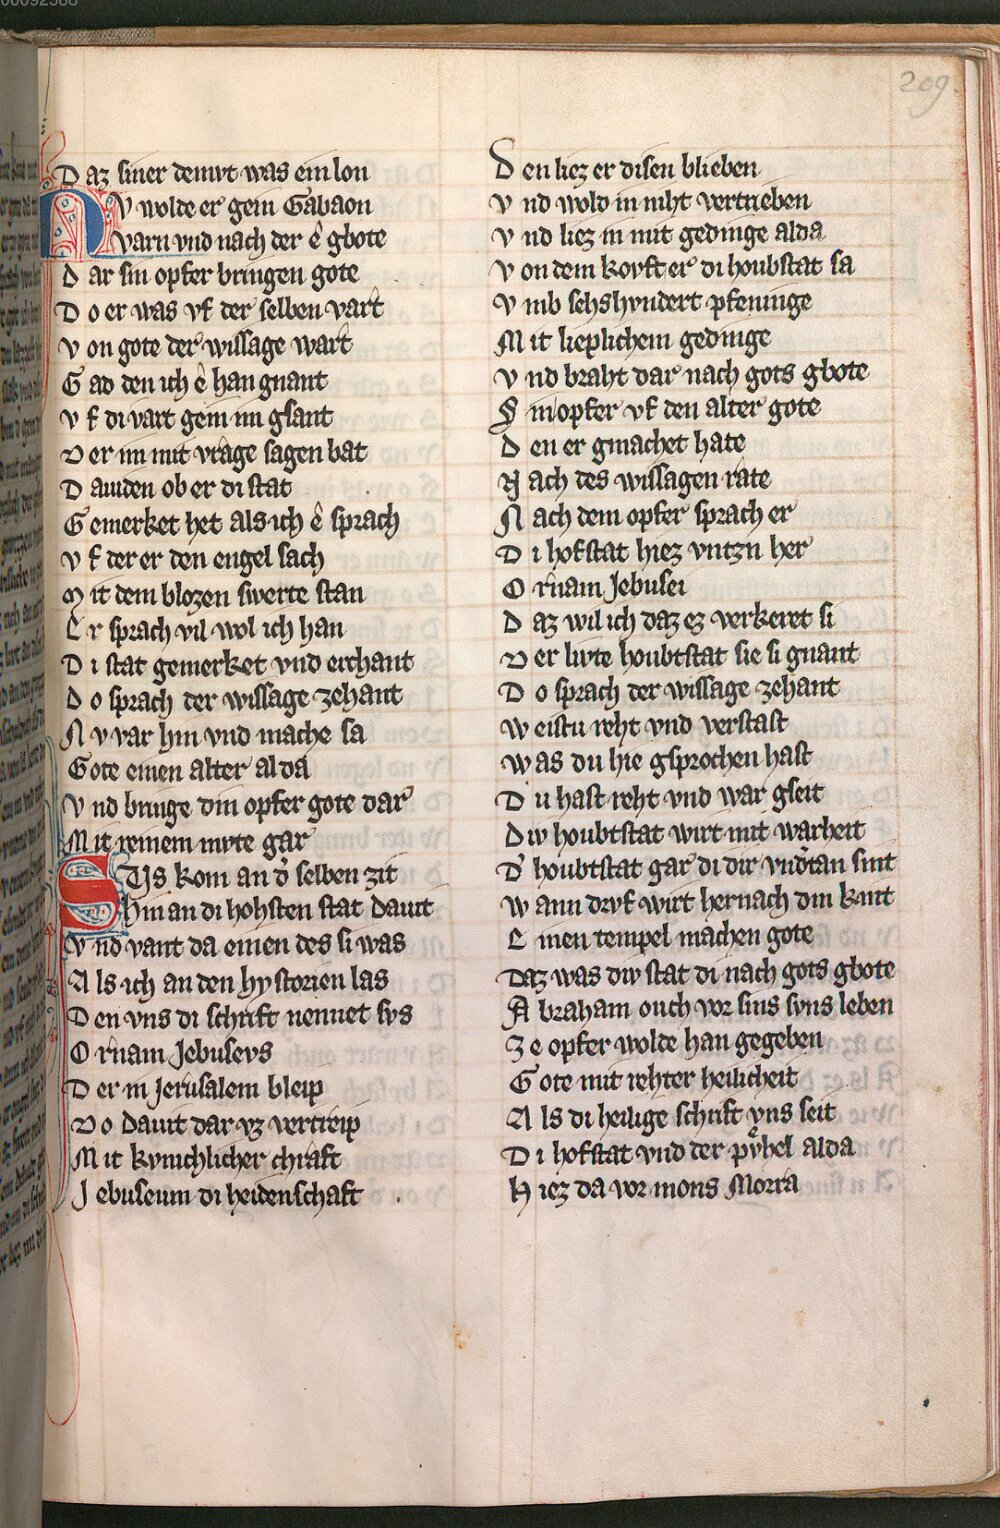 209.
Daz siner demvt was ein lon
Nv wolde er gein Gabaon
varn vnd nach der ê gbote
Dar sin opfer bringen gote
Do er was vf der selben vart
Von gote der wissage wart
Gad den ich ê han gnant
Vf di vart gein im gsant
Der im mit vrage sagen bat
Dauiden ob er di stat
Gemerket het als ich ê sprach
Vf der er den engel sach
Mit dem blozen swerte stan
Er sprach vil wol ich han
Di stat gemerket vnd erchant
Do sprach der wissage zehant
Nv var hin vnd mache sa
Gote einen alter alda
Vnd bringe din opfer gote dar
Mit reinem mvte gar
SVs kom an d' selben zit
Hin an di hohsten stat Dauit
Vnd vant da einen des si was
Als ich an den hystorien las
Den vns di schrift nennet svs
Ornam Jebusevs
Der in Jerusalem bleip
Do Dauit dar vz vertreip
Mit kvnichlicher chraft
Jebuseum di heidenschaft
Den liez er disen blieben
Vnd wold in niht vertrieben
Vnd liez in mit gedinge alda
Von dem kovft er di houbstat sa
Vmb sehshvndert pfenninge
Mit lieplichem gedinge
Vnd braht dar nach gots gbote
Sin opfer vf den alter gote
Den er gmachet hate
Nach des wissagen rate
Nach dem opfer sprach er
Di hofstat hiez vntzn her
Ornam Jebusei
Daz wil ich daz ez verkeret si
Der livte houbtstat sie si gnant
Do sprach der wissage zehant
Weistu reht vnd verstast
Was du hie gsprochen hast
Du hast reht vnd war gseit
Div houbtstat wirt mit warheit
D' houbtstat gar di dir vnd'tan sint
Wann drvf wirt hernach din kint
Einen tempel machen gote
Daz was div stat di nach gots gbote
Abraham ouch vor sins svns leben
Ze opfer wolde han gegeben
Gote mit rehter heilicheit
Als di heilige schrift vns seit
Di hofstat vnd der pvͤhel alda
Hiez da vor mons Morra